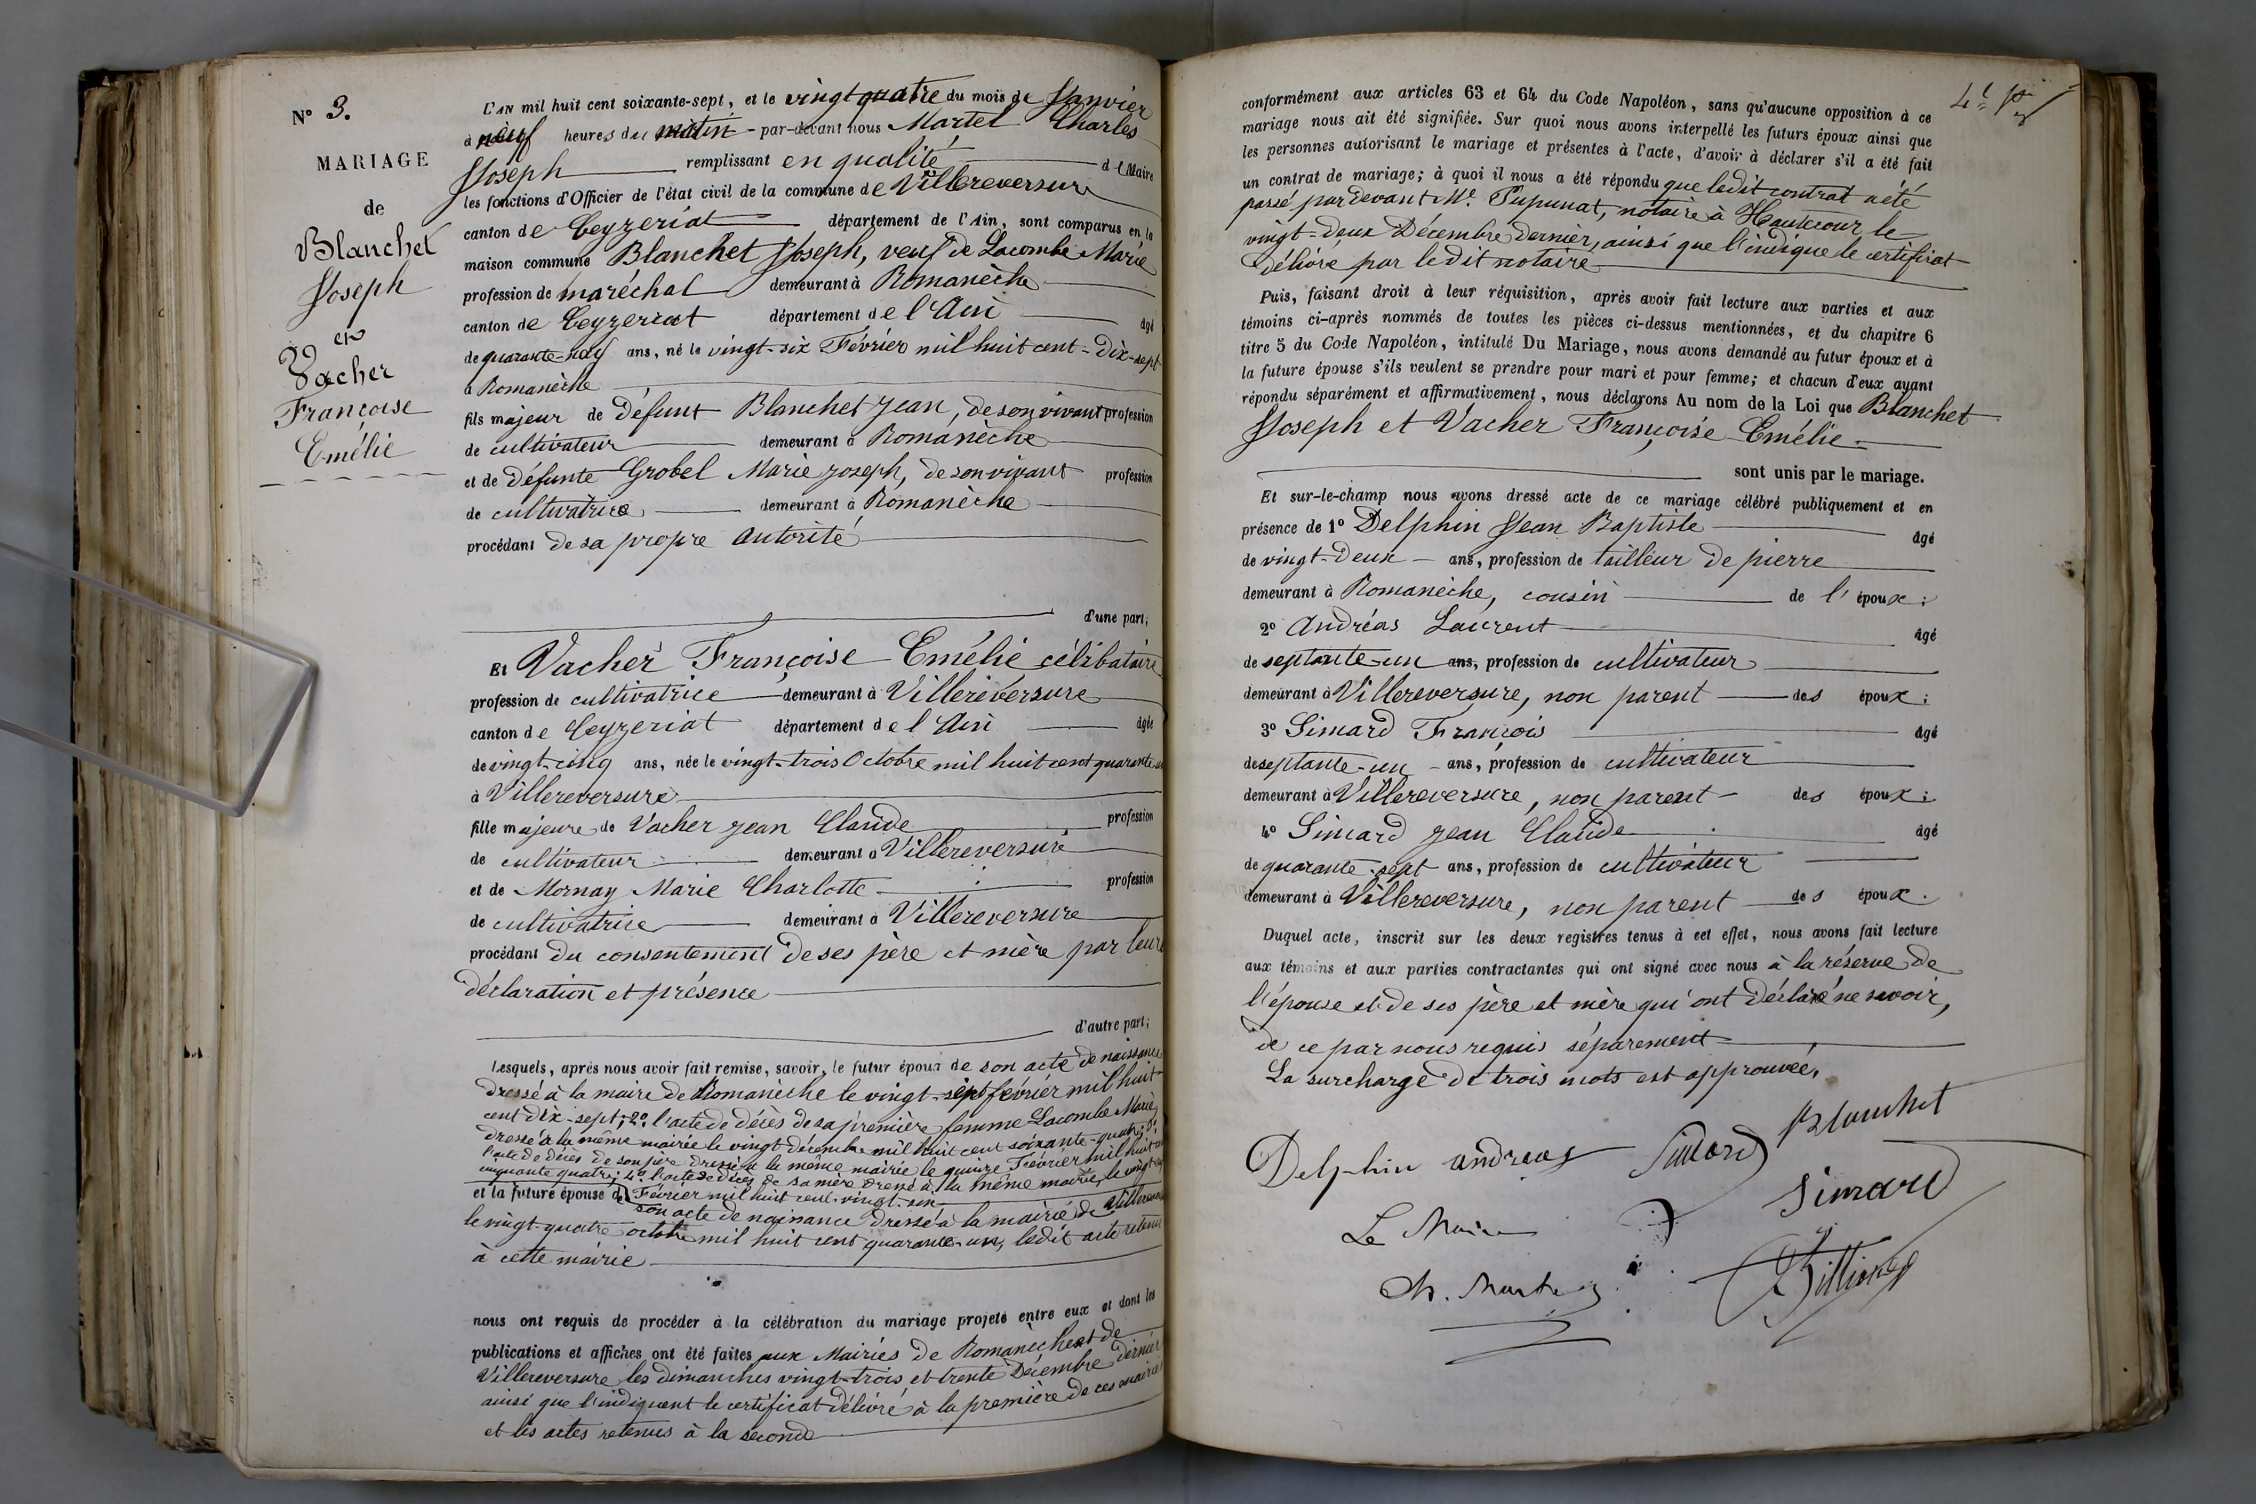 N° 3.
MARIAGE
de
Blanchet
Joseph
et
Vacher
Françoise
Emélie
L'AN mil huit cent soixante-sept, et le vingt quatre du mois de Janvier
à neuf heures du matin par-devant nous Martel Charles
Joseph remplissant en qualité de Maire
les fonctions d'Officier de l'état civil de la commune de Villereversure
canton de Ceyzeriat département de l'Ain, sont comparus en la
maison commune Blanchet Joseph, veuf de Lacombe Marie
profession de maréchal demeurant à Romanèche
canton de Ceyzeriat département de l'Ain âgé
de quarante-neuf ans, né le vingt-six Février mil huit cent-dix-sept
à Romanèche
fils majeur de défunt Blanchet Jean, de son vivant profession
de cultivateur demeurant à Romanèche
et de défunte Grobel Marie Joseph, de son vivant profession
de cultivatrice demeurant à Romanèche
procédant de sa propre autorité
d'une part;
Et Vacher Françoise Emélie célibataire
profession de cultivatrice demeurant à Villereversure
canton de Ceyzeriat département de l'Ain âgée
de vingt-cinq ans, née le vingt-trois Octobre mil huit cent quarante un
à Villereversure
fille majeure de Vacher Jean Claude profession
de cultivateur demeurant à Villereversure
et de Mornay Marie Charlotte profession
de cultivatrice demeurant à Villereversure
procédant du consentement de ses père et mère par leur
déclaration et présence
d'autre part;
Lesquels, après nous avoir fait remise, savoir, le futur époux de son acte de naissance
dressé à la maire de Romanèche le vingt-sept février mil huit
cent dix-sept; 2° l'acte de décès de sa première femme Lacombe Marie,
dressé à la même mairie le vingt décembre mil huit cent soixante-quatre; 3°
l'acte de décès de son père dressé à la même mairie le quinze Février mil huit cent
cinquante quatre; 4° l'acte de décès de sa mère dressé à la même mairie, le vingt
et la future épouse de Février mil huit cent-vingt-six
son acte de naissance dressé à la mairie de Villereversure
le vingt-quatre octobre mil huit cent quarante-un, ledit acte retenu
à cette mairie
nous ont requis de procéder à la célébration du mariage projeté entre eux et dont les
publications et affiches ont été faites aux Mairies de Romanèche et de
Villereversure les dimanches vingt-trois et trente Décembre dernier
ainsi que l'indiquent le certificat délivré à la première de ces mairies
et les actes retenus à la seconde
conformément aux articles 63 et 64 du Code Napoléon, sans qu'aucune opposition à ce
mariage nous ait été signifiée. Sur quoi nous avons interpellé les futurs époux ainsi que
les personnes autorisant le mariage et présentes à l'acte, d'avoir à déclarer s'il a été fait
un contrat de mariage; à quoi il nous a été répondu que ledit contrat a été
passé par devant Me. Pupunat, notaire à Hautecour le
vingt-deux Décembre dernier, ainsi que l'indique le certificat
délivré par ledit notaire
Puis, faisant droit à leur réquisition, après avoir fait lecture aux parties et aux
témoins ci-après nommés de toutes les pièces ci-dessus mentionnées, et du chapitre 6
titre 5 du Code Napoléon, intitulé Du Mariage, nous avons demandé au futur époux et à
la future épouse s'ils veulent se prendre pour mari et pour femme; et chacun d'eux ayant
répondu séparément et affirmativement, nous déclarons Au nom de la Loi que Blanchet
Joseph et Vacher Françoise Emélie
sont unis par le mariage.
Et sur-le-champ nous avons dressé acte de ce mariage célébré publiquement et en
présence de 1° Delphin Jean Baptiste âgé
de vingt-deux ans, profession de tailleur de pierre
demeurant à Romanèche, cousin de l'époux;
2° Andréas Laurent âgé
de septante-un ans, profession de cultivateur
demeurant à Villereversure, non parent des époux;
3° Simard François âgé
de septante-un ans, profession de cultivateur
demeurant à Villereversure, non parent des époux;
4° Simard Jean Claude âgé
de quarante-sept ans, profession de cultivateur
demeurant à Villereversure, non parent des époux.
Duquel acte, inscrit sur les deux registres tenus à cet effet, nous avons fait lecture
aux témoins et aux parties contractantes qui ont signé avec nous à la réserve de
l'épouse et de ses père et mère qui ont déclaré ne savoir,
de ce par nous requis séparement
La surcharge de trois mots est approuvée.
Blanchet
Delphin andreas Simard
Simard
Le Maire
Ch. Martel